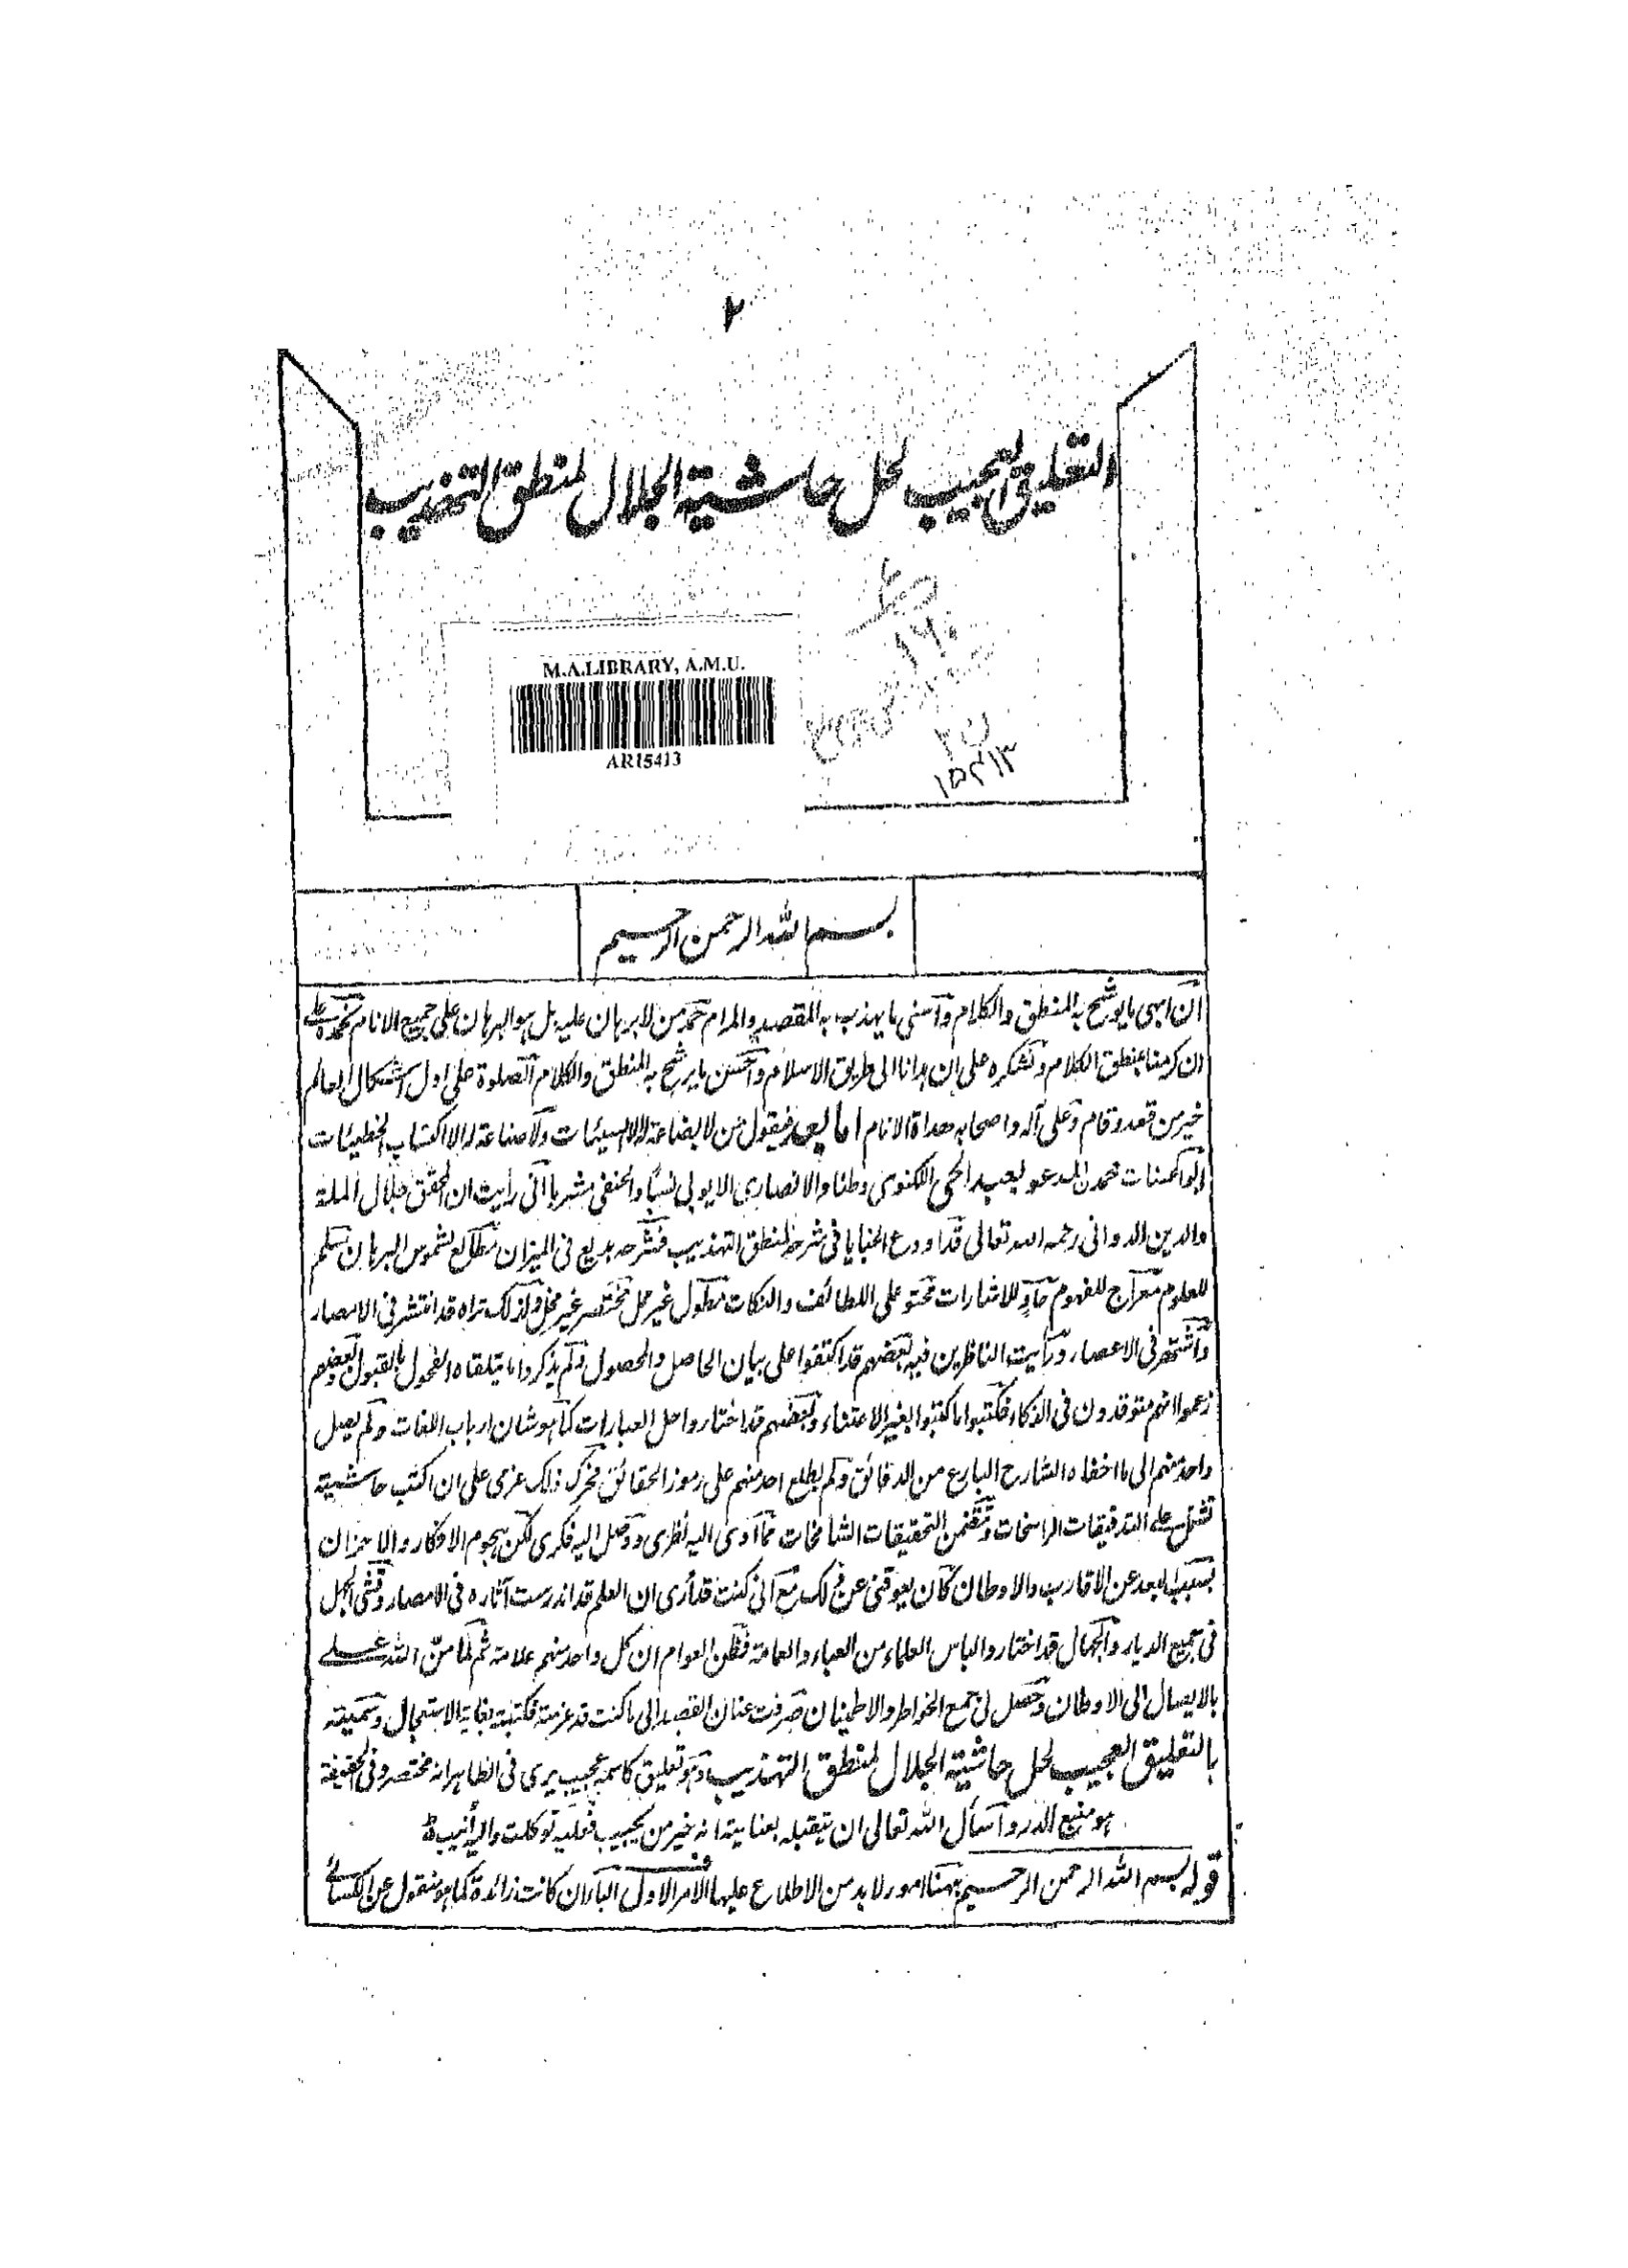 ٢
التعليق العجيب لحل حاشية الجلال لمنطق التهذيب
M.A.LIBRARY, A.M.U.
AR15413
١٥٤١٣
بسم الله الرحمن الرحيم
ان ابهى ما يوشح به المنطق والكلام وأسنى ما يهذب به المقصد والمرام حمد من لا برهان عليه بل هو البرهان على جميع الانام نحمده على
ان كرمنا بمنطق الكلام ونشكره على ان هدانا الى طريق الاسلام واحسن ما يرشح به المنطق والكلام الصلوة على اول اشكال العالم
خير من قعد وقام وعلى آله واصحابه هداة الانام اما بعد فيقول من لا بضاعة له الا السيئات ولا صناعة له الا اكتساب الخطيئات
ابو الحسنات محمد المدعو بعبد الحي اللكنوي وطنا والانصاري الايوبي نسبا والحنفي مشربا اني رأيت ان المحقق جلال الملة
والدين الدواني رحمه الله تعالى قد اودع الخبايا في شرحه لمنطق التهذيب فشرحه بديع في الميزان مطالع لشموس البرهان سلم
للعلوم معراج للفهوم حاو للاشارات محتو على اللطائف والنكات مطول غير ممل مختصر غير مخل ولذلك تراه قد انتشر في الامصار
واشتهر في الاعصار ورأيت الناظرين فيه بعضهم قد اكتفوا على بيان الحاصل والمحصول ولم يذكروا ما يتلقاه الفحول بالقبول وبعضهم
زعموا انهم متوقدون في الذكاء فكتبوا ما كتبوا بغير الاعتناء وبعضهم قد اختاروا حل العبارات كما هو شان ارباب اللغات ولم يصل
واحد منهم الى ما اخفاه الشارح البارع من الدقائق ولم يطلع احد منهم على رموز الحقائق فحرك ذلك عزمي على ان اكتب حاشية
تشتمل على التدقيقات الراسخات وتتضمن التحقيقات الشامخات مما ادى اليه نظري ووصل اليه فكري لكن هجوم الافكار والاحزان
بسبب البعد عن الاقارب والاوطان كان يعوقني عن ذلك مع اني كنت قد أرى ان العلم قد اندرست آثاره في الامصار وفشى الجهل
في جميع الديار والجهال قد اختاروا لباس العلماء من العباء والعمامة فظن العوام ان كل واحد منهم علامة ثم لما من الله علي
بالايصال الى الاوطان وحصل لي جمع الخواطر والاطمينان صرفت عنان القصد الى ما كنت قد عزمته فكتبته بغاية الاستعجال وسميته
بالتعليق العجيب لحل حاشية الجلال لمنطق التهذيب وهو تعليق كاسمه عجيب يرى في الظاهر انه مختصر وفي الحقيقة
هو منبع الدرر واسأل الله تعالى ان يتقبله بعنايته انه خير من يجيب فعليه توكلت واليه أنيب
قوله بسم الله الرحمن الرحيم ههنا امور لا بد من الاطلاع عليها الامر الاول الباء ان كانت زائدة كما هو منقول عن الكسائي